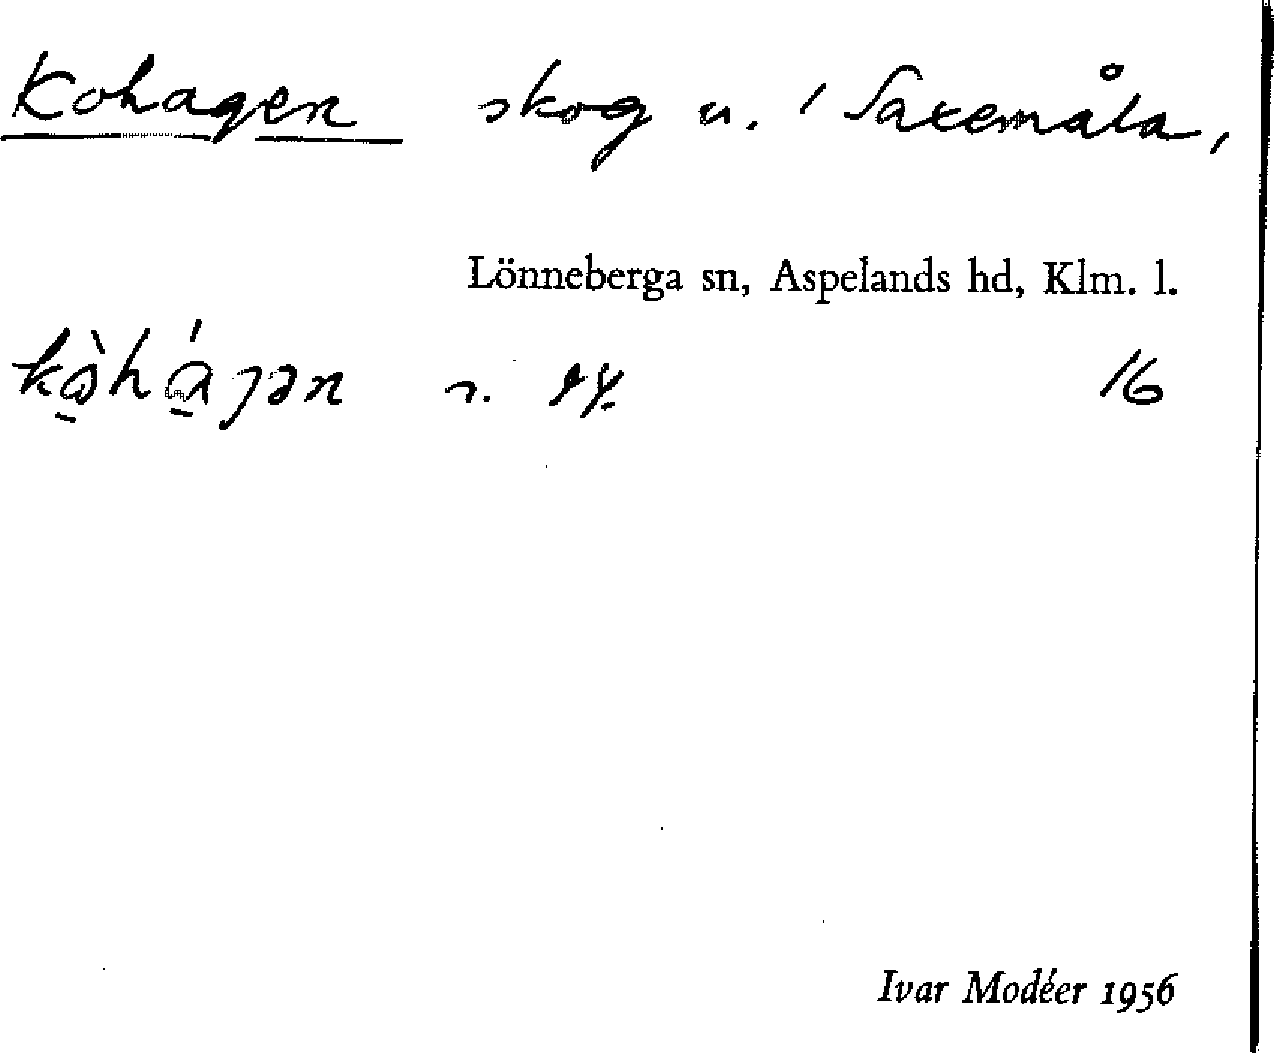 Kohagen skog u. / Saxemåla,
Lönneberga sn, Aspelands hd, Klm. l.
16
Ivar Modéer 1956